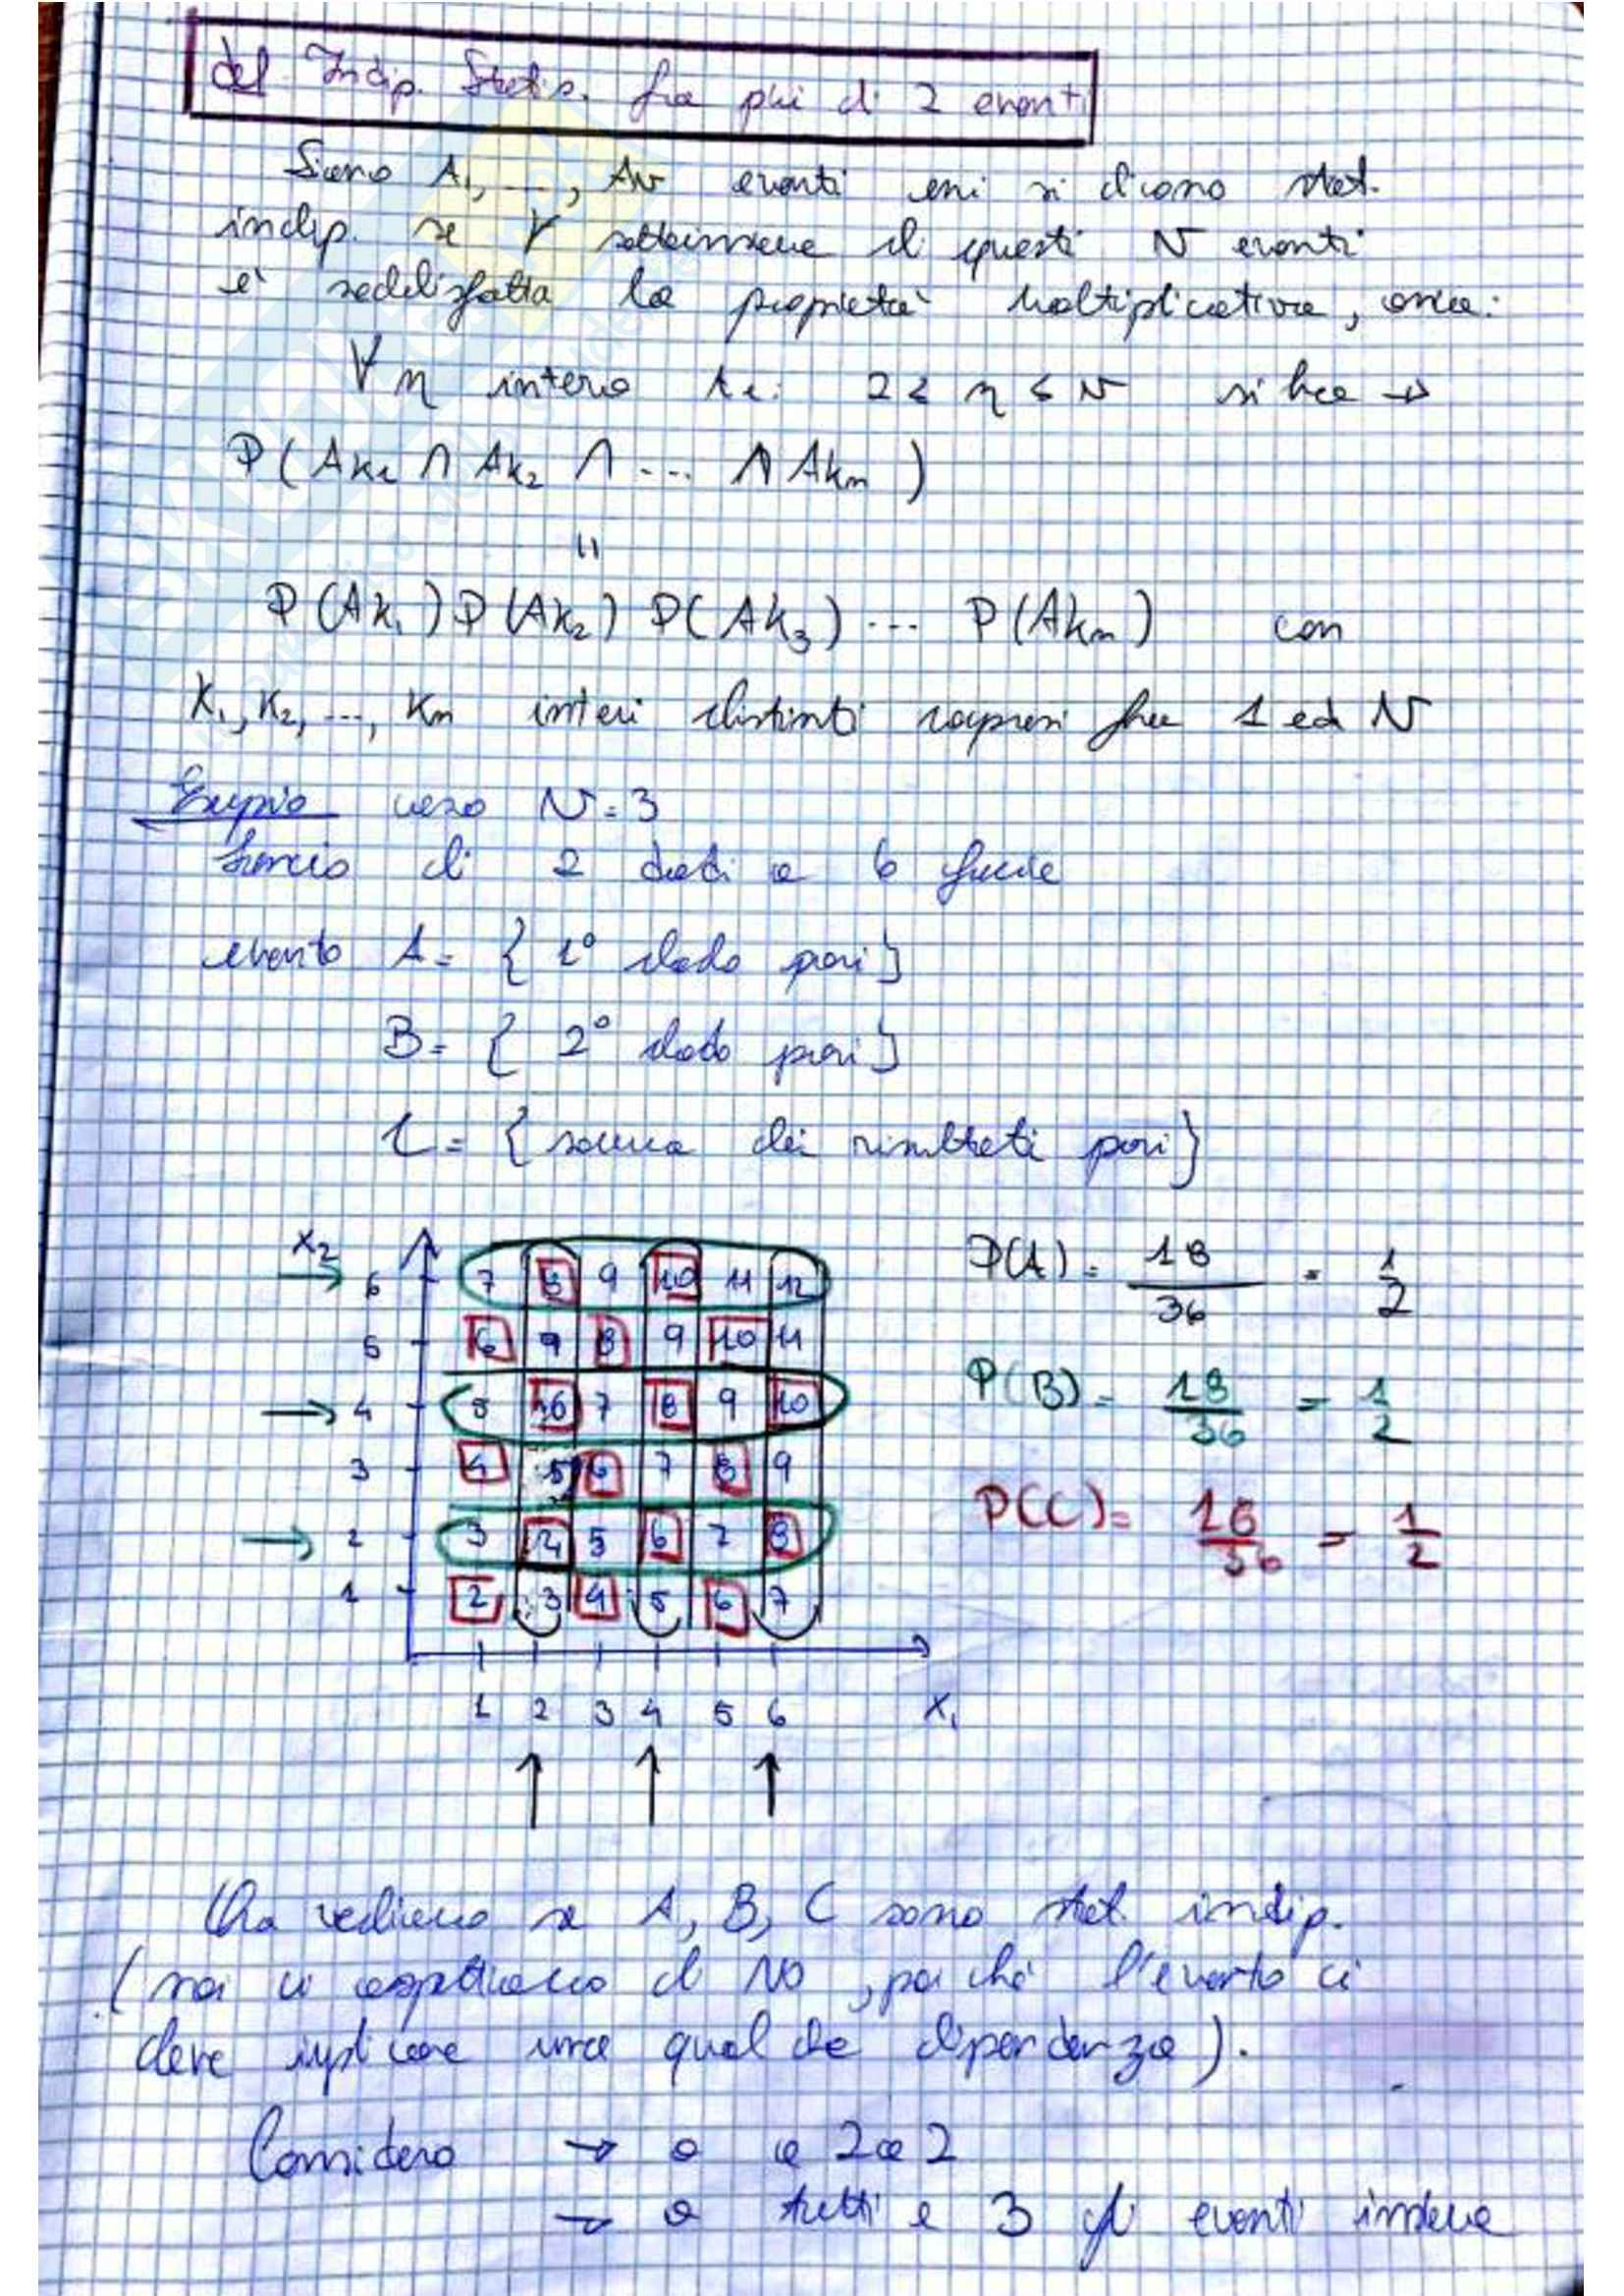 def Indip. Statis. fra più di 2 eventi
Siano A₁, ..., AN eventi essi si dicono stat.
indip. se ∀ sottoinsieme di questi N eventi
è soddisfatta la proprietà moltiplicativa, ossia:
∀ n intero t.c. 2 ≤ n ≤ N si ha →
P(Ak₁ ∩ Ak₂ ∩ ... ∩ Akn)
=
P(Ak₁) P(Ak₂) P(Ak₃) ... P(Akn) con
K₁, K₂, ..., Kn interi distinti compresi fra 1 ed N
Esempio caso N=3
lancio di 2 dadi a 6 facce
evento A = { 1° dado pari }
B = { 2° dado pari }
C = { somma dei risultati pari }
X₂ → 6 7 8 9 10 11 12 P(A) = 18/36 = 1/2
5 6 9 8 9 10 11
→ 4 5 6 7 8 9 10 P(B) = 18/36 = 1/2
3 4 5 6 7 8 9
→ 2 3 4 5 6 7 8 P(C) = 18/36 = 1/2
1 2 3 4 5 6 7
1 2 3 4 5 6 X₁
↑ ↑ ↑
Ora vediamo se A, B, C sono stat. indip.
(noi ci aspettiamo di NO, poiché l'evento C
deve implicare una qualche dipendenza).
Considero → o a 2 a 2
→ o tutti e 3 gli eventi insieme